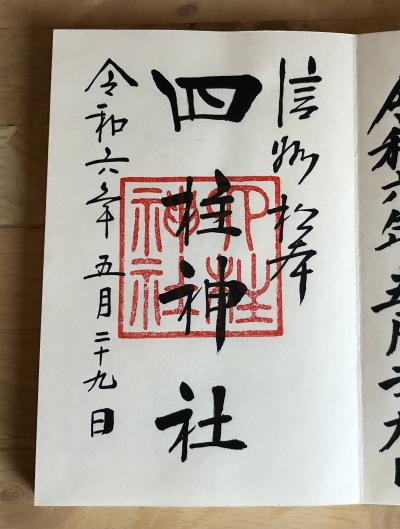 信州松本
四柱神社
四柱神社
令和六年五月二十九日
令和六年五月二九日